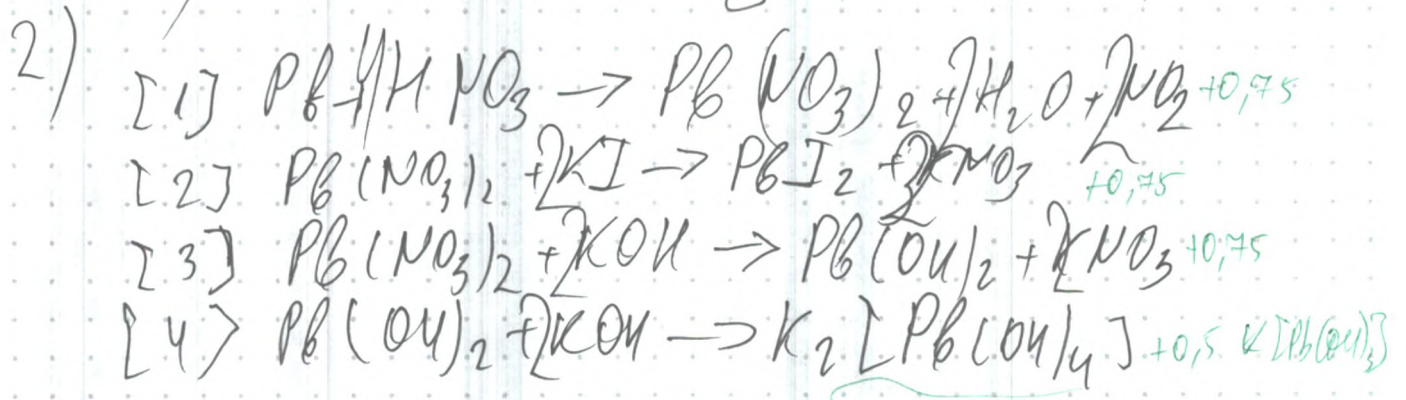 2)
[1] Pb + 4HNO3 → Pb(NO3)2 + 2H2O + 2NO2 +0,75
[2] Pb(NO3)2 + 2KI → PbI2 + 2KNO3 +0,75
[3] Pb(NO3)2 + 2KOH → Pb(OH)2 + 2KNO3 +0,75
[4] Pb(OH)2 + 2KOH → K2[Pb(OH)4] +0,5 K[Pb(OH)3]